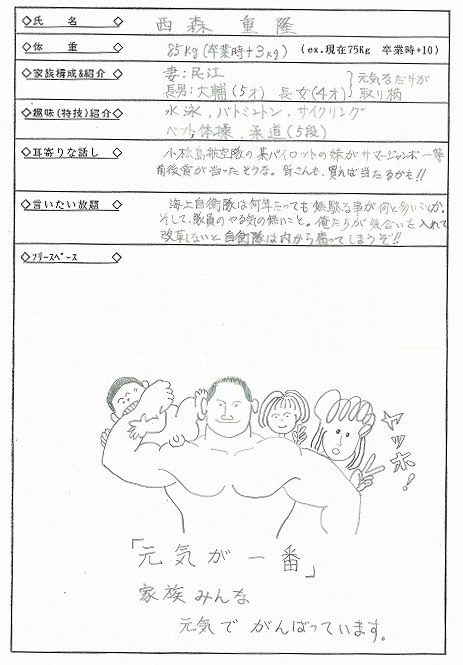 ◇氏 名 ◇ 西森 重隆
◇体 重 ◇ 85Kg(卒業時+3kg) (ex.現在75Kg 卒業時+10)
◇家族構成&紹介 ◇ 妻:民江
長男:大輔(5才) 長女(4才) 元気なだけが取り柄
◇趣味(特技)紹介◇ 水泳,バトミントン,サイクリング
ベット体操,柔道(5段)
◇耳寄りな話し ◇ 小松島航空隊の某パイロットの妹がサマージャンボ一等
前後賞が当ったそうな。皆さんも、買えば当たるかも!!
◇言いたい放題 ◇ 海上自衛隊は何年たっても無駄な事が何と多いことか。
そして、隊員のやる気の無いこと。俺たちが気合いを入れて
改革しないと自衛隊は内から腐ってしまうぞ!!
◇フリースペース ◇
ヤッホー!
「元気が一番」
家族みんな
元気でがんばっています。